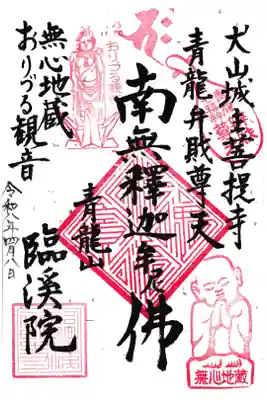 犬山城主菩提寺
青龍弁財尊天
南無釋迦牟尼佛
青龍山
臨溪院
無心地蔵
おりづる観音
令和八年四月八日
おりづる観音
無心地蔵